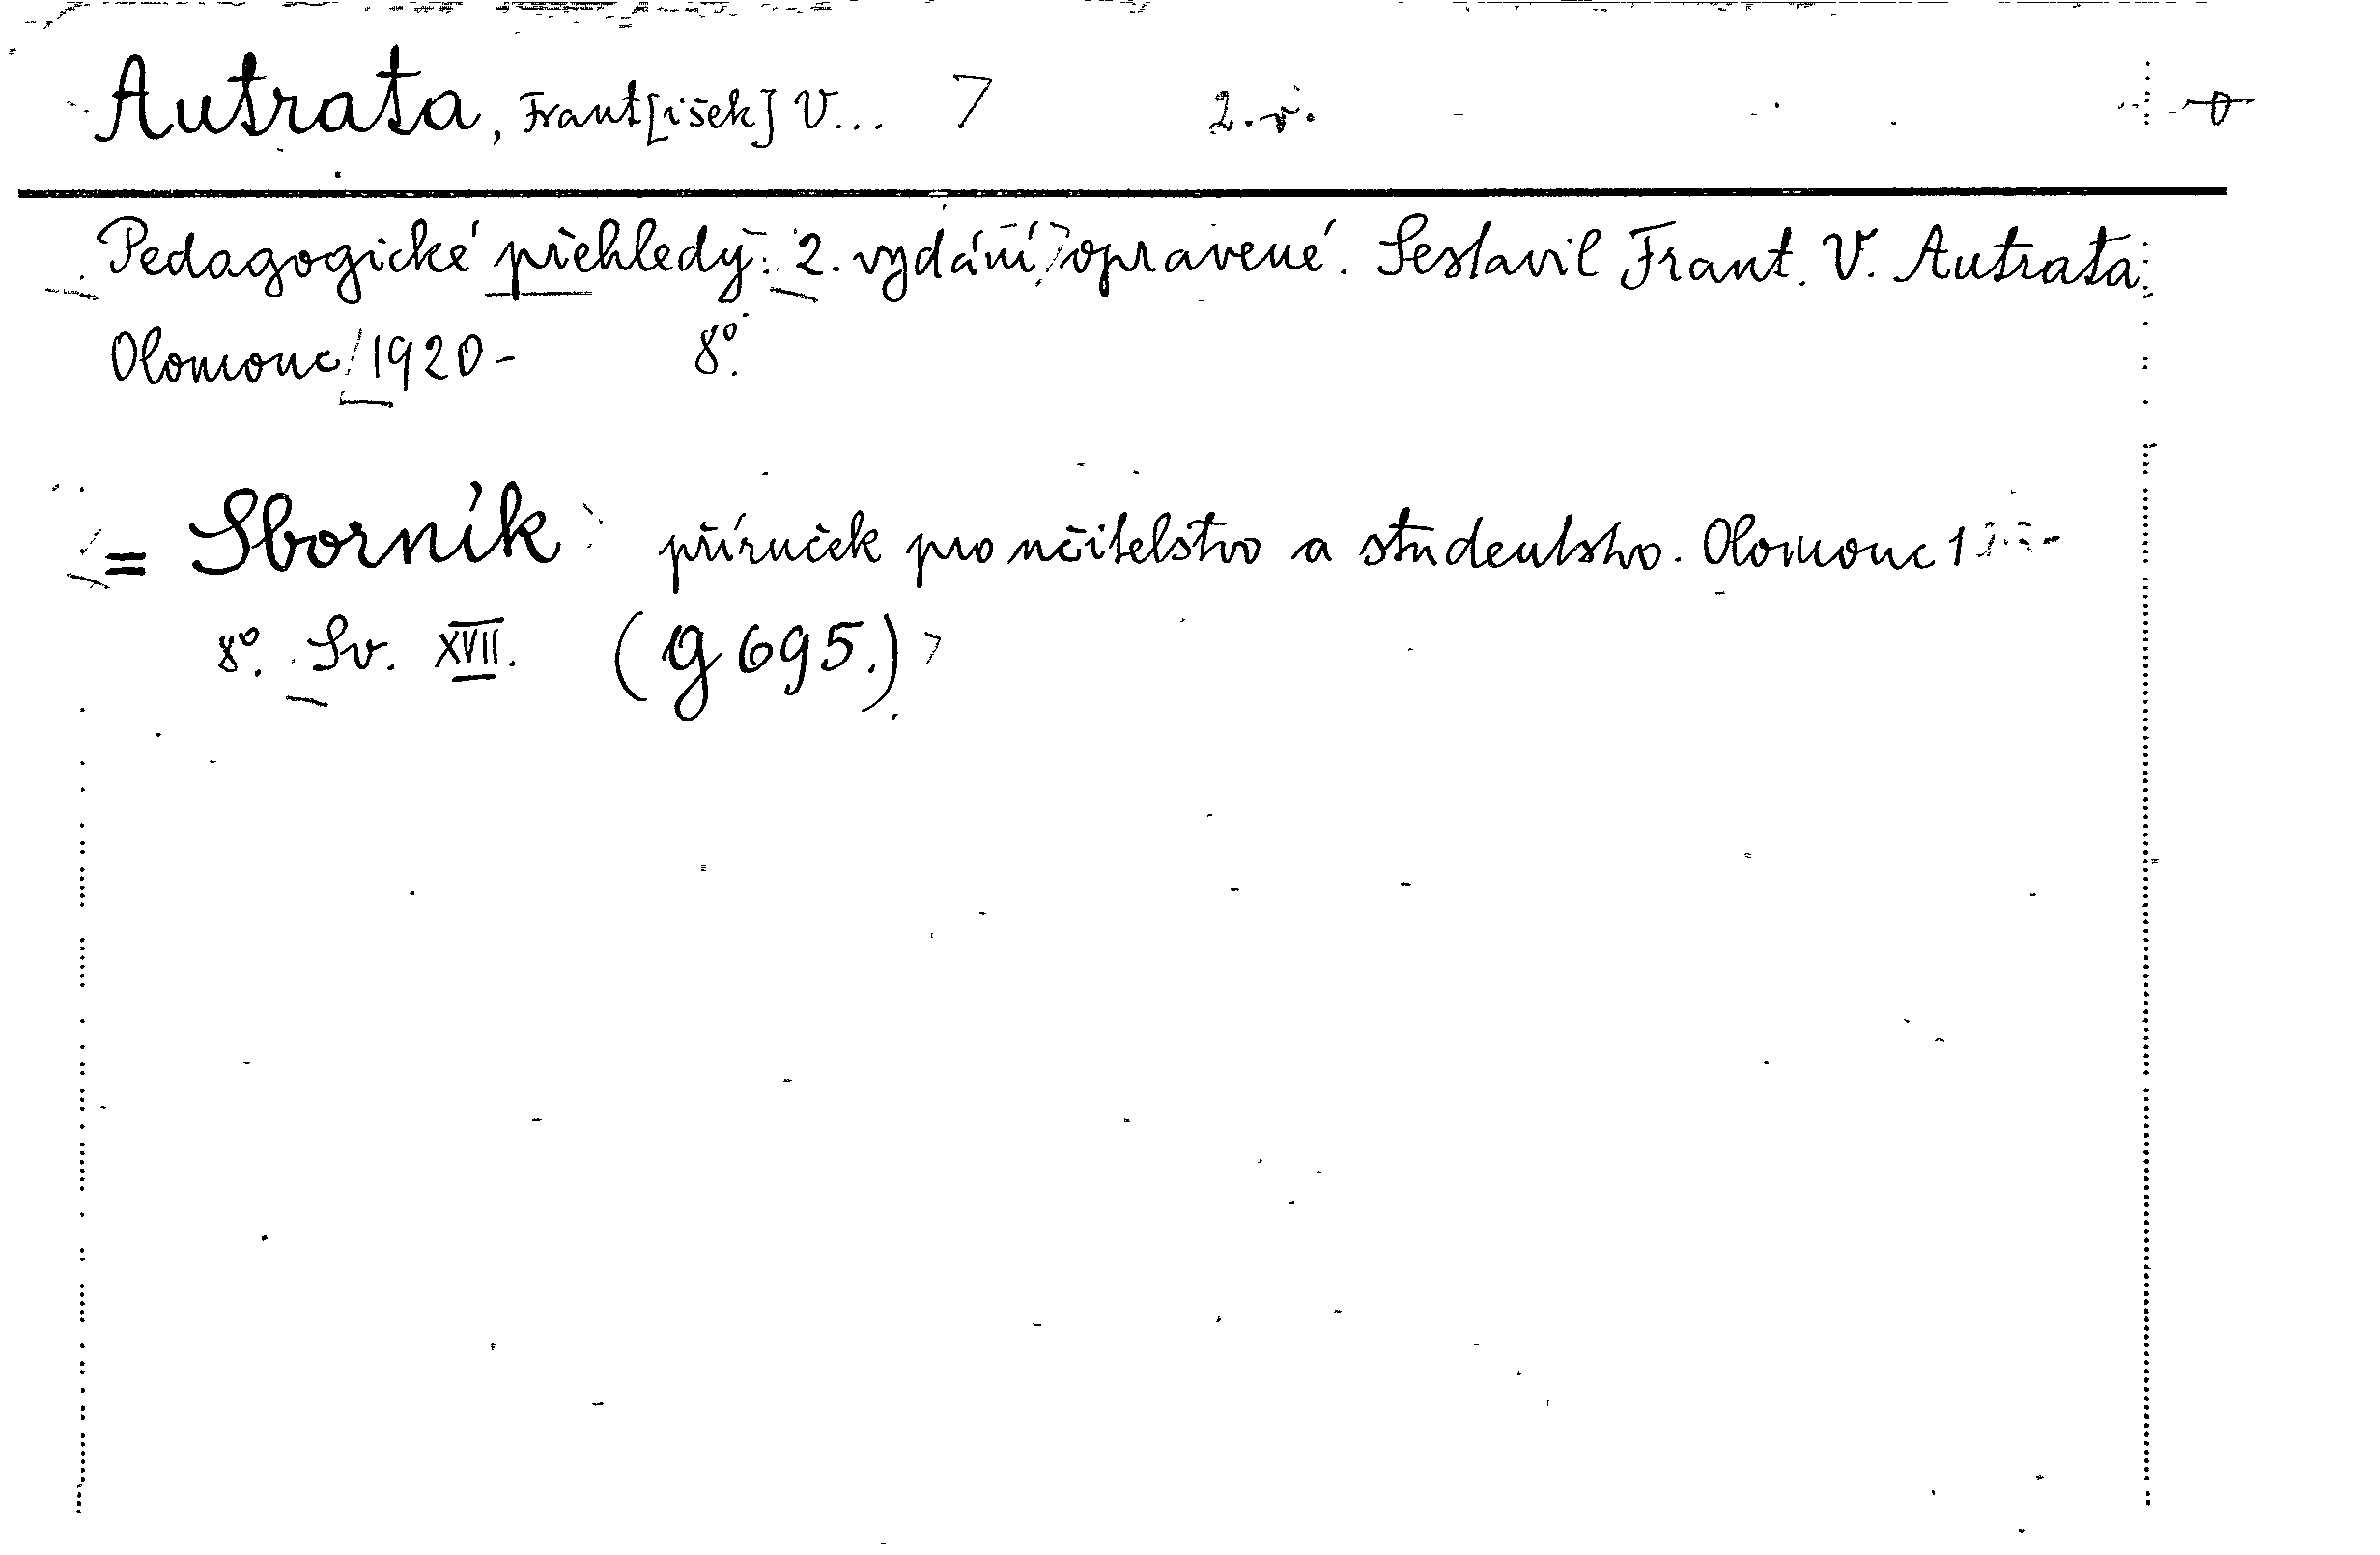 Autrata, Frant[išek] V... 2.v.
Pedagogické přehledy. 2. vydání opravené. Sestavil Frant. V. Autrata.
Olomouc 1920- 8°.
= Sborník příruček pro učitelstvo a studentstvo. Olomouc
8°. Sv. XVII. (g 695.)